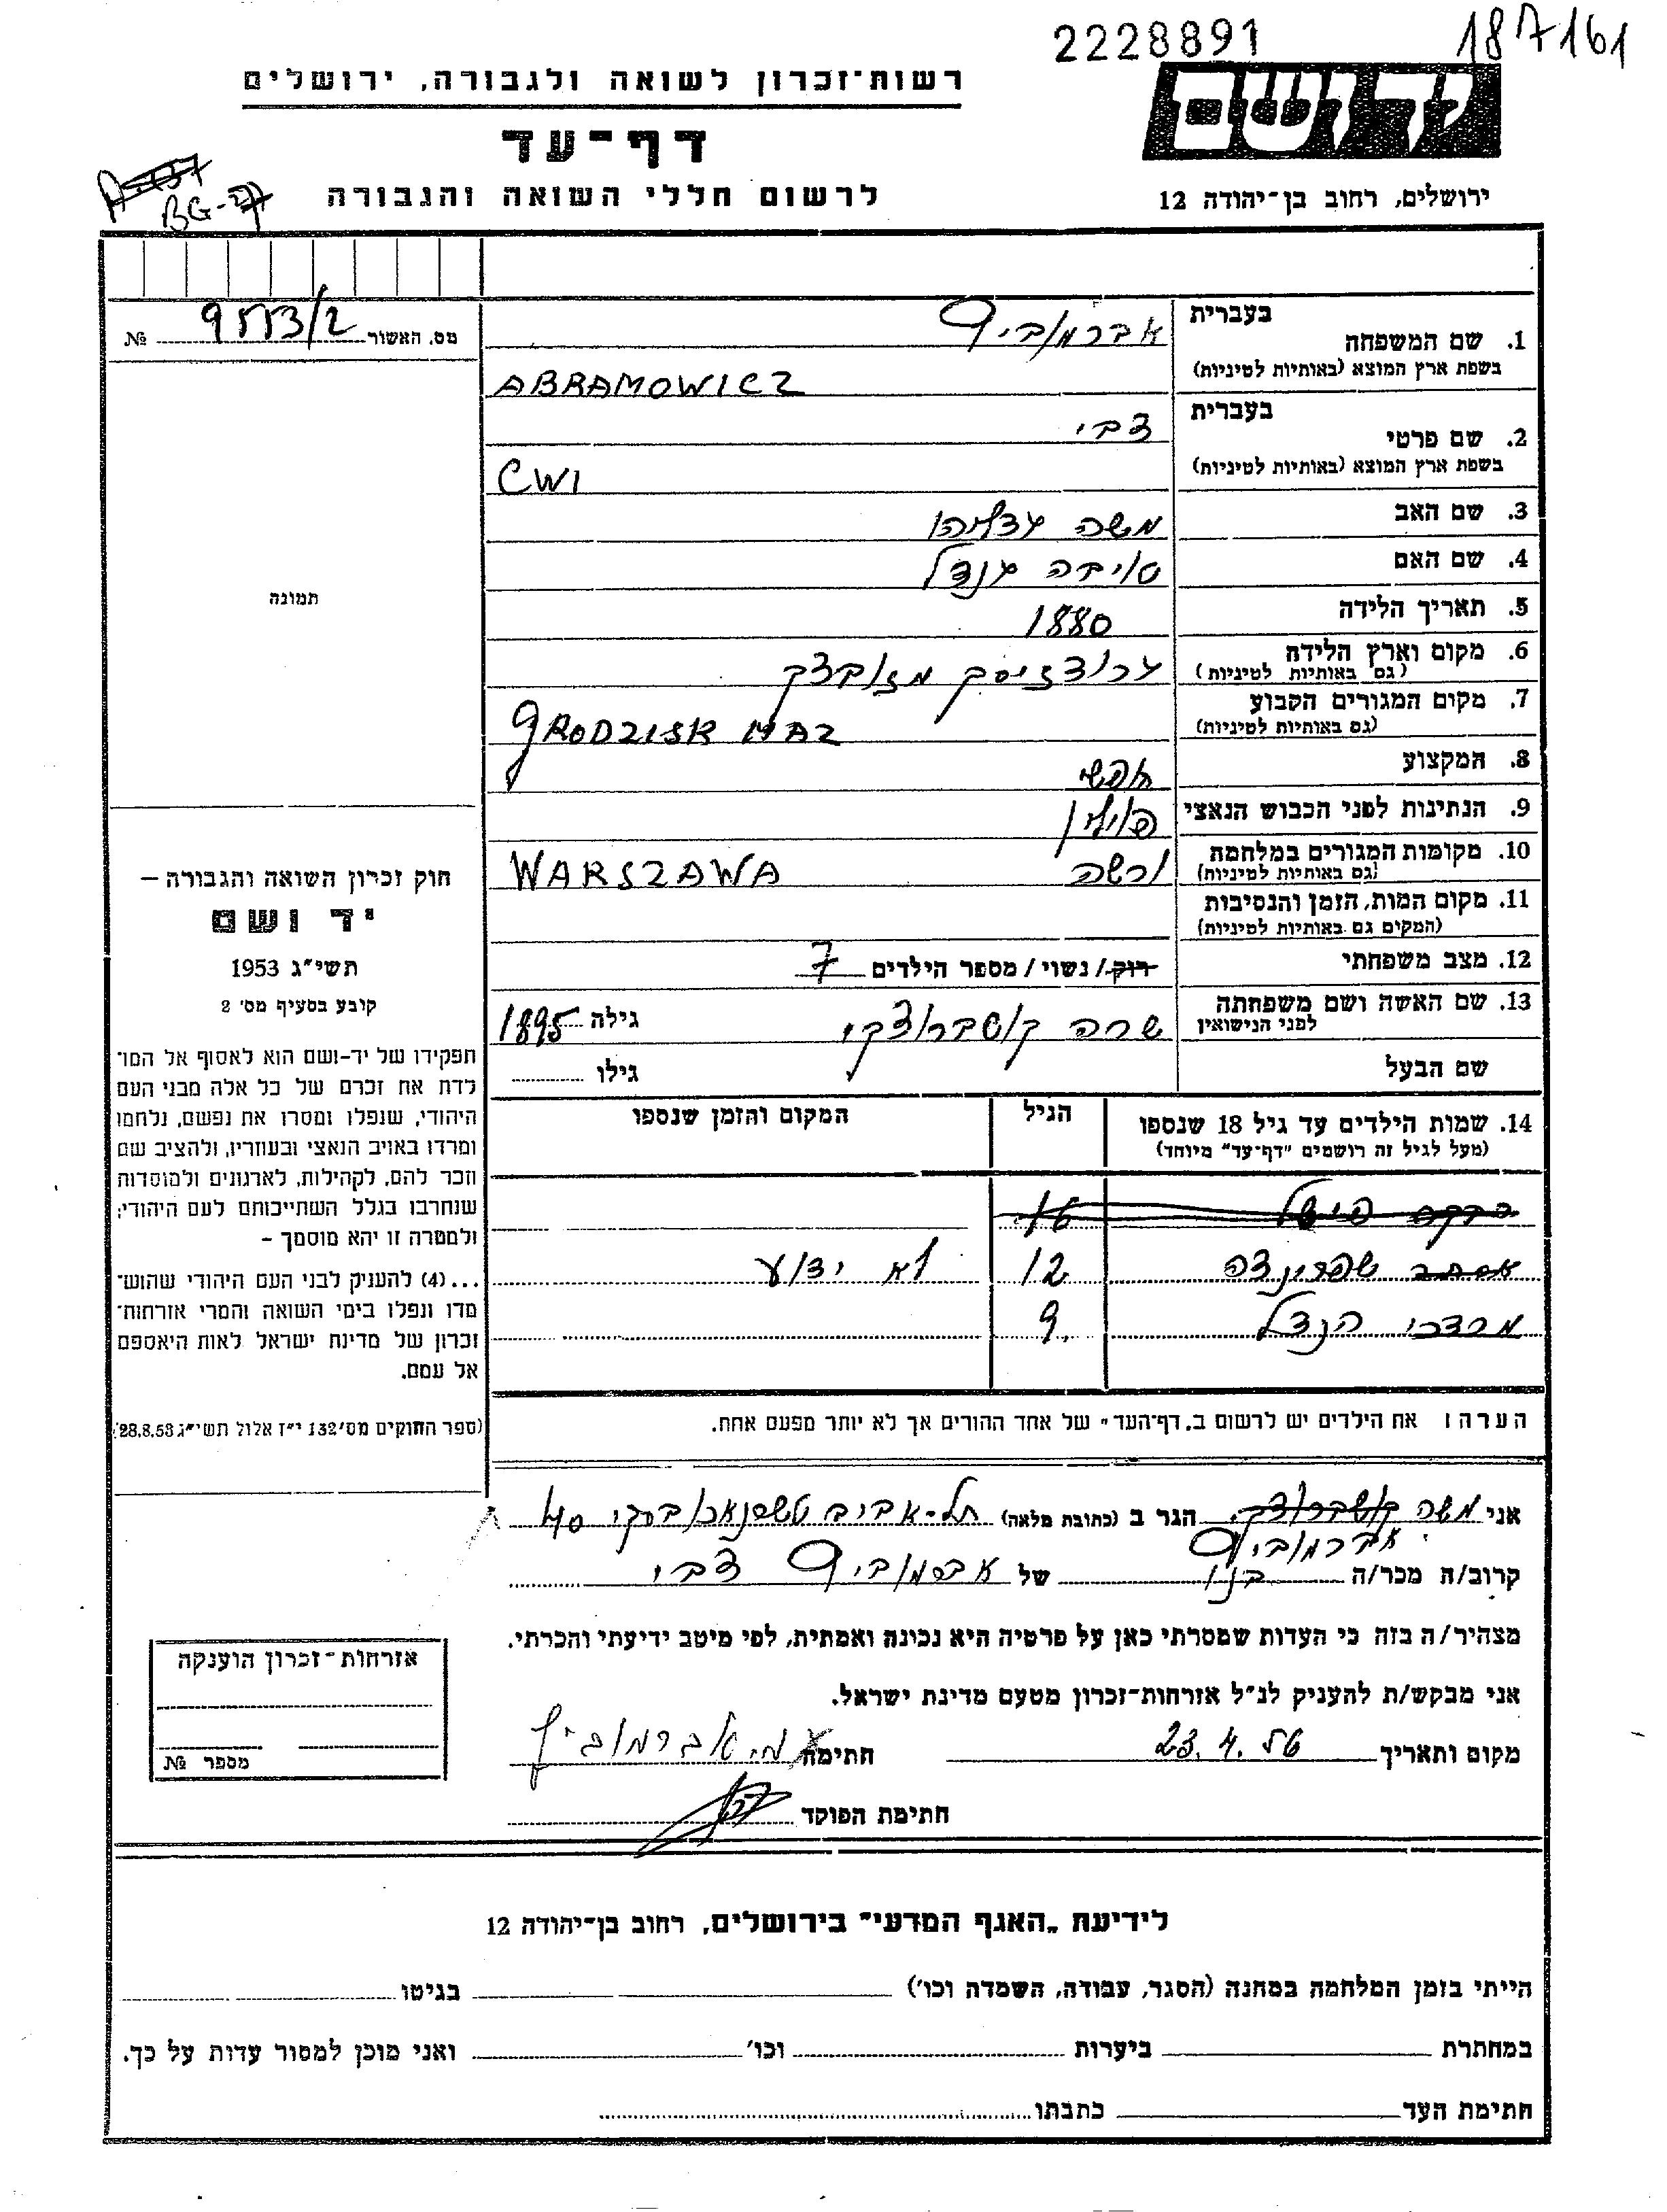 2228891
187161
רשות־זכרון לשואה ולגבורה, ירושלים
יד ושם
דף־עד
BG-27
לרשום חללי השואה והגבורה
ירושלים, רחוב בן־יהודה 12
מס. האשור № 9553/2
1. שם המשפחה בעברית אברמוביץ
בשפת ארץ המוצא (באותיות לטיניות) ABRAMOWICZ
2. שם פרטי בעברית צבי
בשפת ארץ המוצא (באותיות לטיניות) CWI
3. שם האב משה
4. שם האם
5. תאריך הלידה 1880
6. מקום וארץ הלידה (גם באותיות לטיניות) גרודזיסק מזובצק
7. מקום המגורים הקבוע (גם באותיות לטיניות) GRODZISK MAZ
8. המקצוע
9. הנתינות לפני הכבוש הנאצי פולין
10. מקומות המגורים במלחמה (גם באותיות לטיניות) ורשה WARSZAWA
11. מקום המות, הזמן והנסיבות
(המקים גם באותיות לטיניות)
12. מצב משפחתי רוק / נשוי / מספר הילדים 7
13. שם האשה ושם משפחתה לפני הנישואין שרה קושברוצקי גילה 1895
שם הבעל גילו
14. שמות הילדים עד גיל 18 שנספו הגיל המקום והזמן שנספו
(מעל לגיל זה רושמים "דף־עד" מיוחד)
16
שפרינצה 12 לא ידוע
מרדכי הנדל 9
הערה: את הילדים יש לרשום ב„דף־העד" של אחד ההורים אך לא יותר מפעם אחת.
תמונה
חוק זכרון השואה והגבורה –
יד ושם
תשי"ג 1953
קובע בסעיף מס' 2
תפקידו של יד-ושם הוא לאסוף אל המו־
לדת את זכרם של כל אלה מבני העם
היהודי, שנפלו ומסרו את נפשם, נלחמו
ומרדו באויב הנאצי ובעוזריו, ולהציב שם
וזכר להם, לקהילות, לארגונים ולמוסדות
שנחרבו בגלל השתייכותם לעם היהודי;
ולמטרה זו יהא מוסמך –
...(4) להעניק לבני העם היהודי שהוש־
מדו ונפלו בימי השואה והמרי אזרחות־
זכרון של מדינת ישראל לאות היאספם
אל עמם.
(ספר החוקים מס' 132 י"ז אלול תשי"ג 28.8.53)
אני משה קושברוצקי הגר ב (כתובת מלאה) תל-אביב טשרנאכובסקי 40
אברמוביץ
קרוב/ה מכר/ה בנו של אברמוביץ צבי
מצהיר/ה בזה כי העדות שמסרתי כאן על פרטיה היא נכונה ואמתית, לפי מיטב ידיעתי והכרתי.
אני מבקש/ת להעניק לנ"ל אזרחות־זכרון מטעם מדינת ישראל.
מקום ותאריך 23.4.56 חתימה מ. אברמוביץ
חתימת הפוקד
אזרחות־זכרון הוענקה
מספר №
לידיעת „האגף המדעי" בירושלים, רחוב בן־יהודה 12
הייתי בזמן המלחמה במחנה (הסגר, עבודה, השמדה וכו') בגיטו
במחתרת ביערות וכו' ואני מוכן למסור עדות על כך.
חתימת העד כתבתו